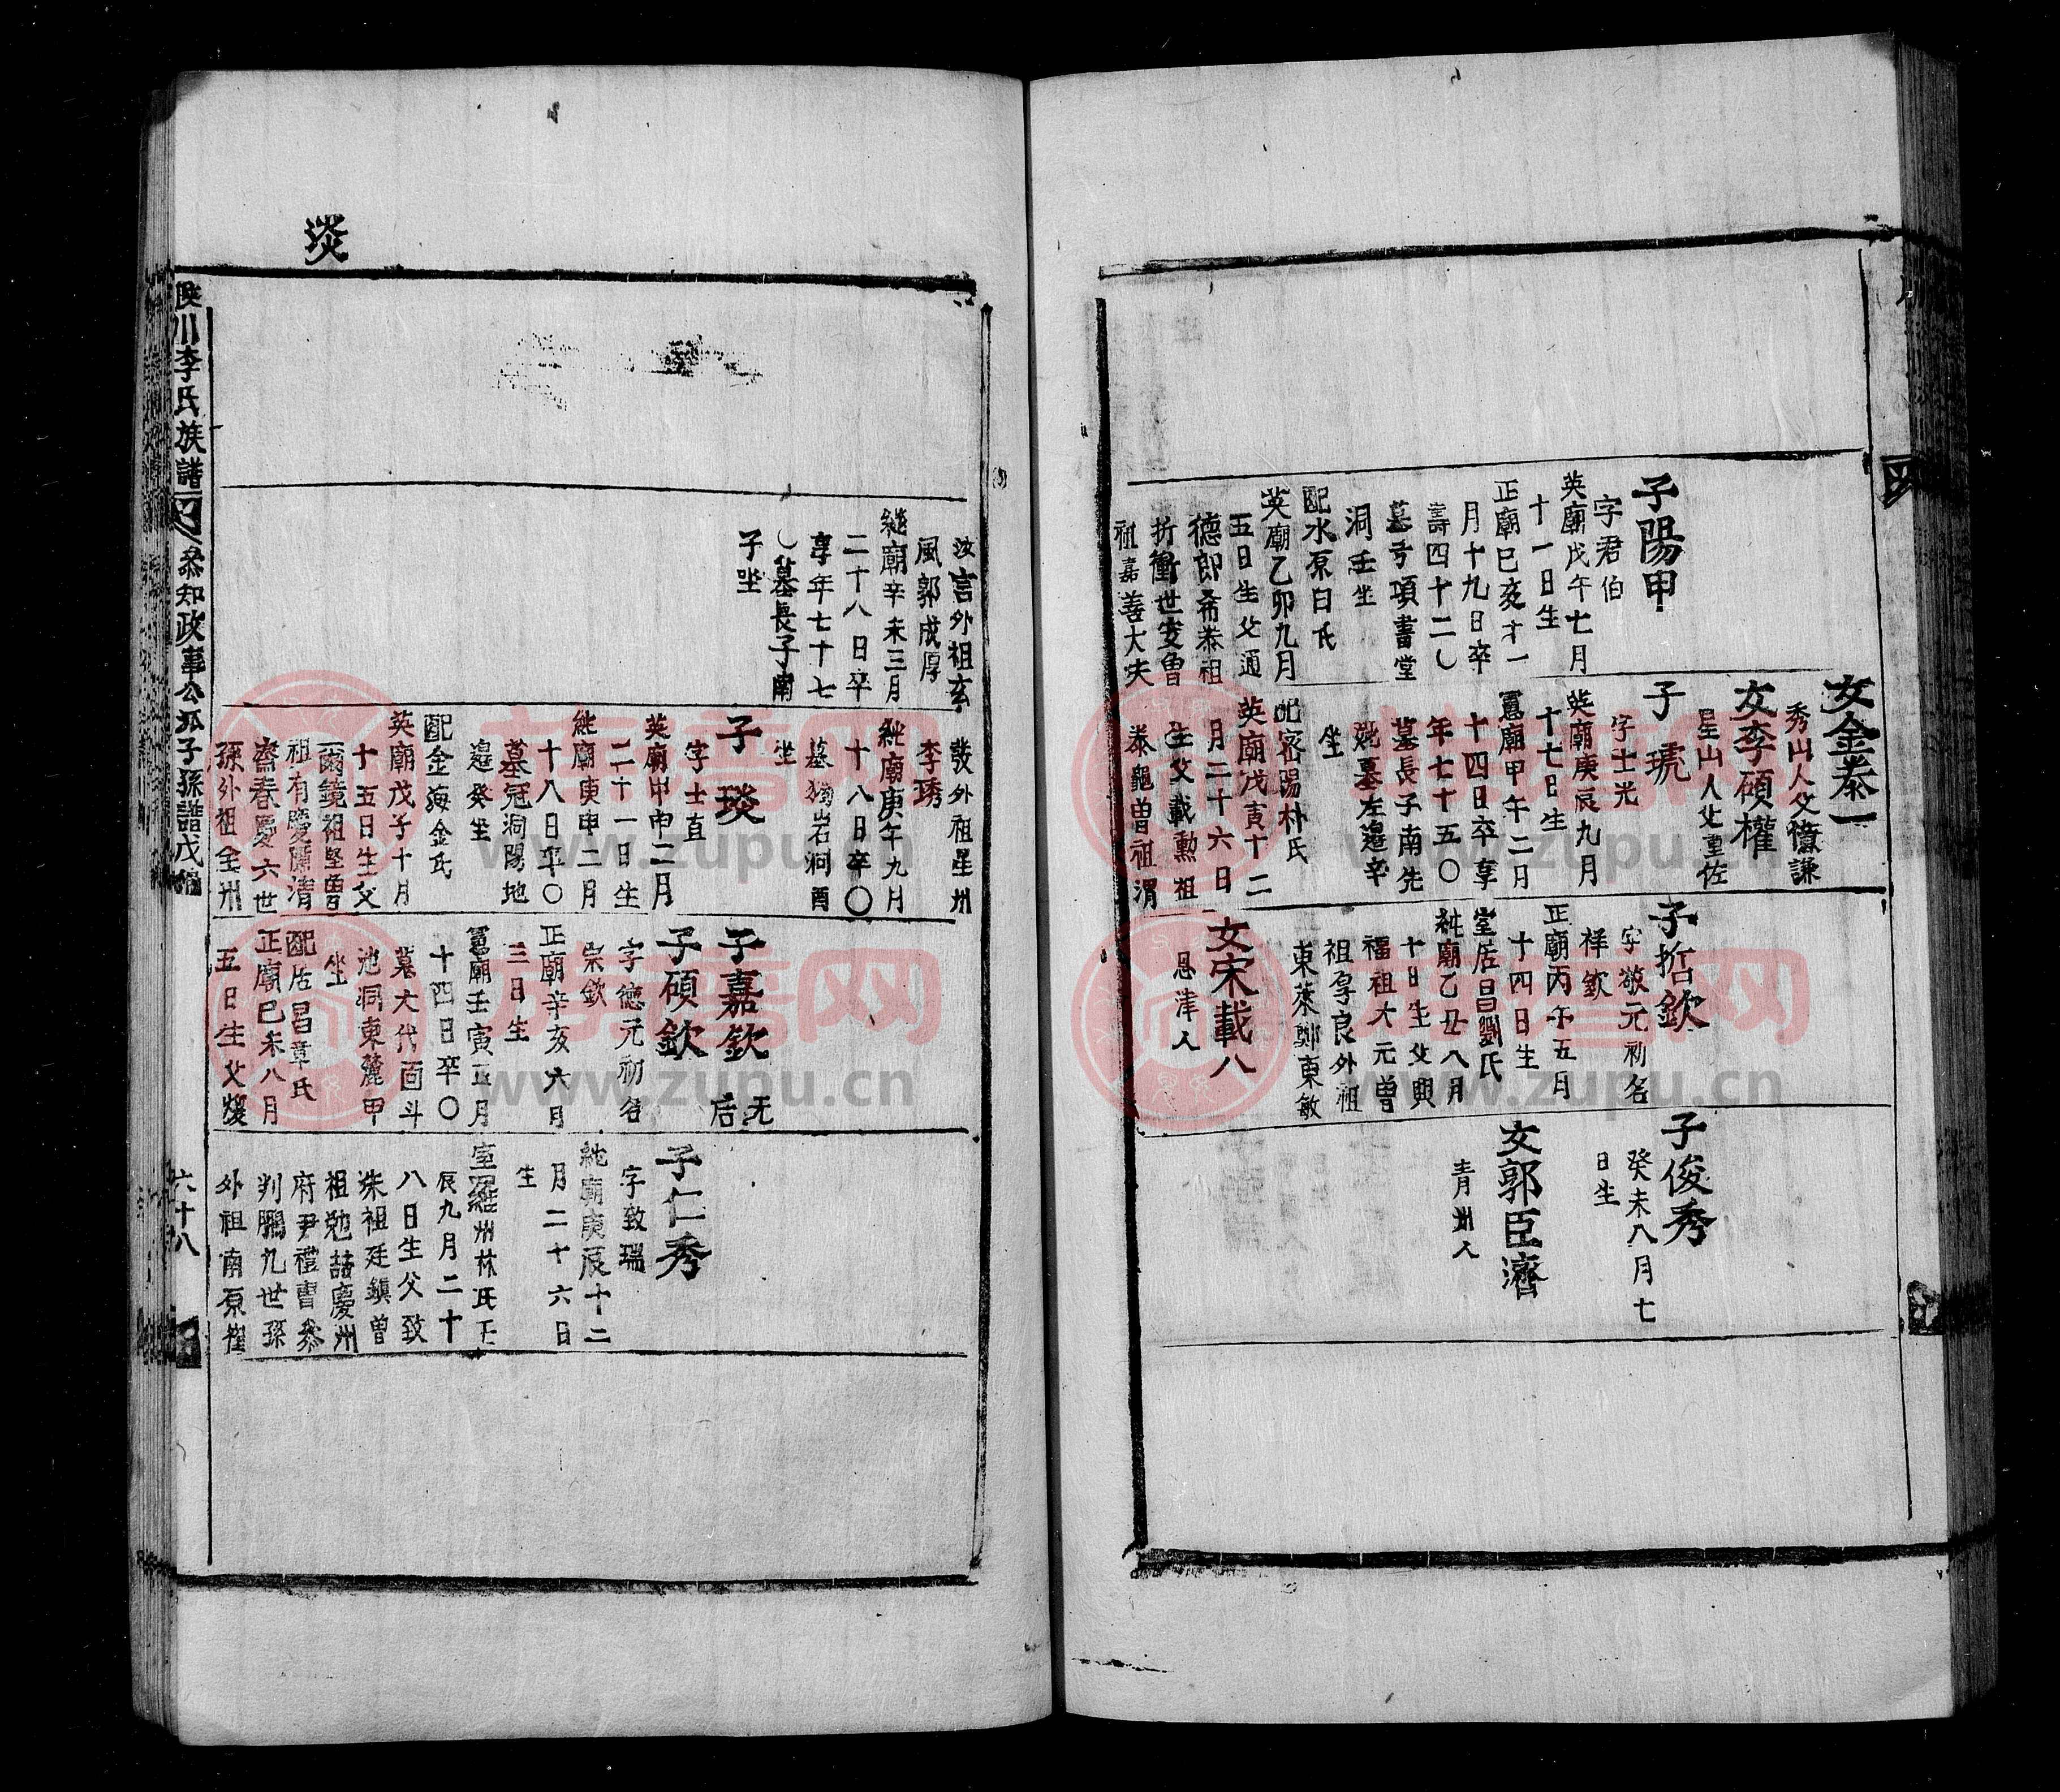 子陽甲
字君伯
英廟戊午七月
十一日生
正廟己亥十一
月十九日卒
壽四十二〇
墓芳項書堂
洞壬坐
配水原白氏
英廟乙卯九月
五日生父通
德郎希泰祖
折衝世安曾
祖嘉善大夫
女金泰一
秀山人父儀謙
女李碩權
星山人父重佐
子琥
字士光
英廟庚辰九月
十七日生
憲廟甲午二月
十四日卒享
年七十五〇
墓長子南先
妣墓左邉辛
坐
配密陽朴氏
英廟戊寅十二
月二十六日
生父載勲祖
泰龜曽祖渭
子哲欽
字敬元初名
祥欽
正廟丙午五月
十四日生
室居昌劉氏
純廟乙丑八月
十日生父興
福祖大元曽
祖享良外祖
東萊鄭東敏
女宋載八
恩津人
子俊秀
癸未八月七
日生
女郭臣濟
青州人
琰
陜川李氏族譜
叅知政事公派子孫譜戊編
六十八
汝言外祖玄
風郭成厚
純廟辛未三月
二十八日卒
享年七十七
〇墓長子南
子坐
發外祖星州
李琇
純廟庚午九月
十八日卒〇
墓獨岩洞酉
坐
子琰
字士直
英廟甲申二月
二十一日生
純廟庚申二月
十八日卒〇
墓冠洞陽地
邉癸坐
配金海金氏
英廟戊子十月
十五日生父
爾鏡祖堅曽
祖有慶關清
齋春慶六世
孫外祖全州
子嘉欽
无后
子碩欽
字德元初名
宗欽
正廟辛亥六月
三日生
憲廟壬寅五月
十四日卒〇
墓大代面斗
池洞東麓甲
坐
配居昌章氏
正廟己未八月
五日生父燦
子仁秀
字致瑞
純廟庚辰十二
月二十六日
生
室羅州林氏壬
辰九月二十
八日生父致
洙祖廷鎮曽
祖勉喆慶州
府尹禮曹叅
判鵬九世孫
外祖南原崔